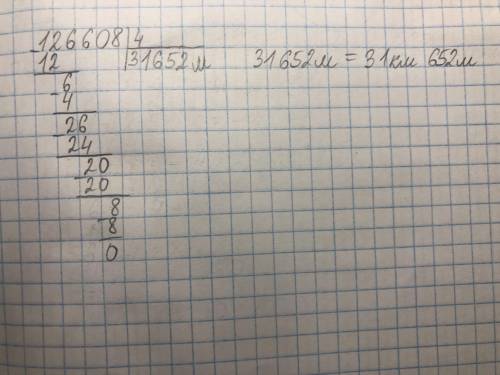 126608 4
12 31652м 31652м = 31км 652м
6
4
26
24
20
20
8
8
0